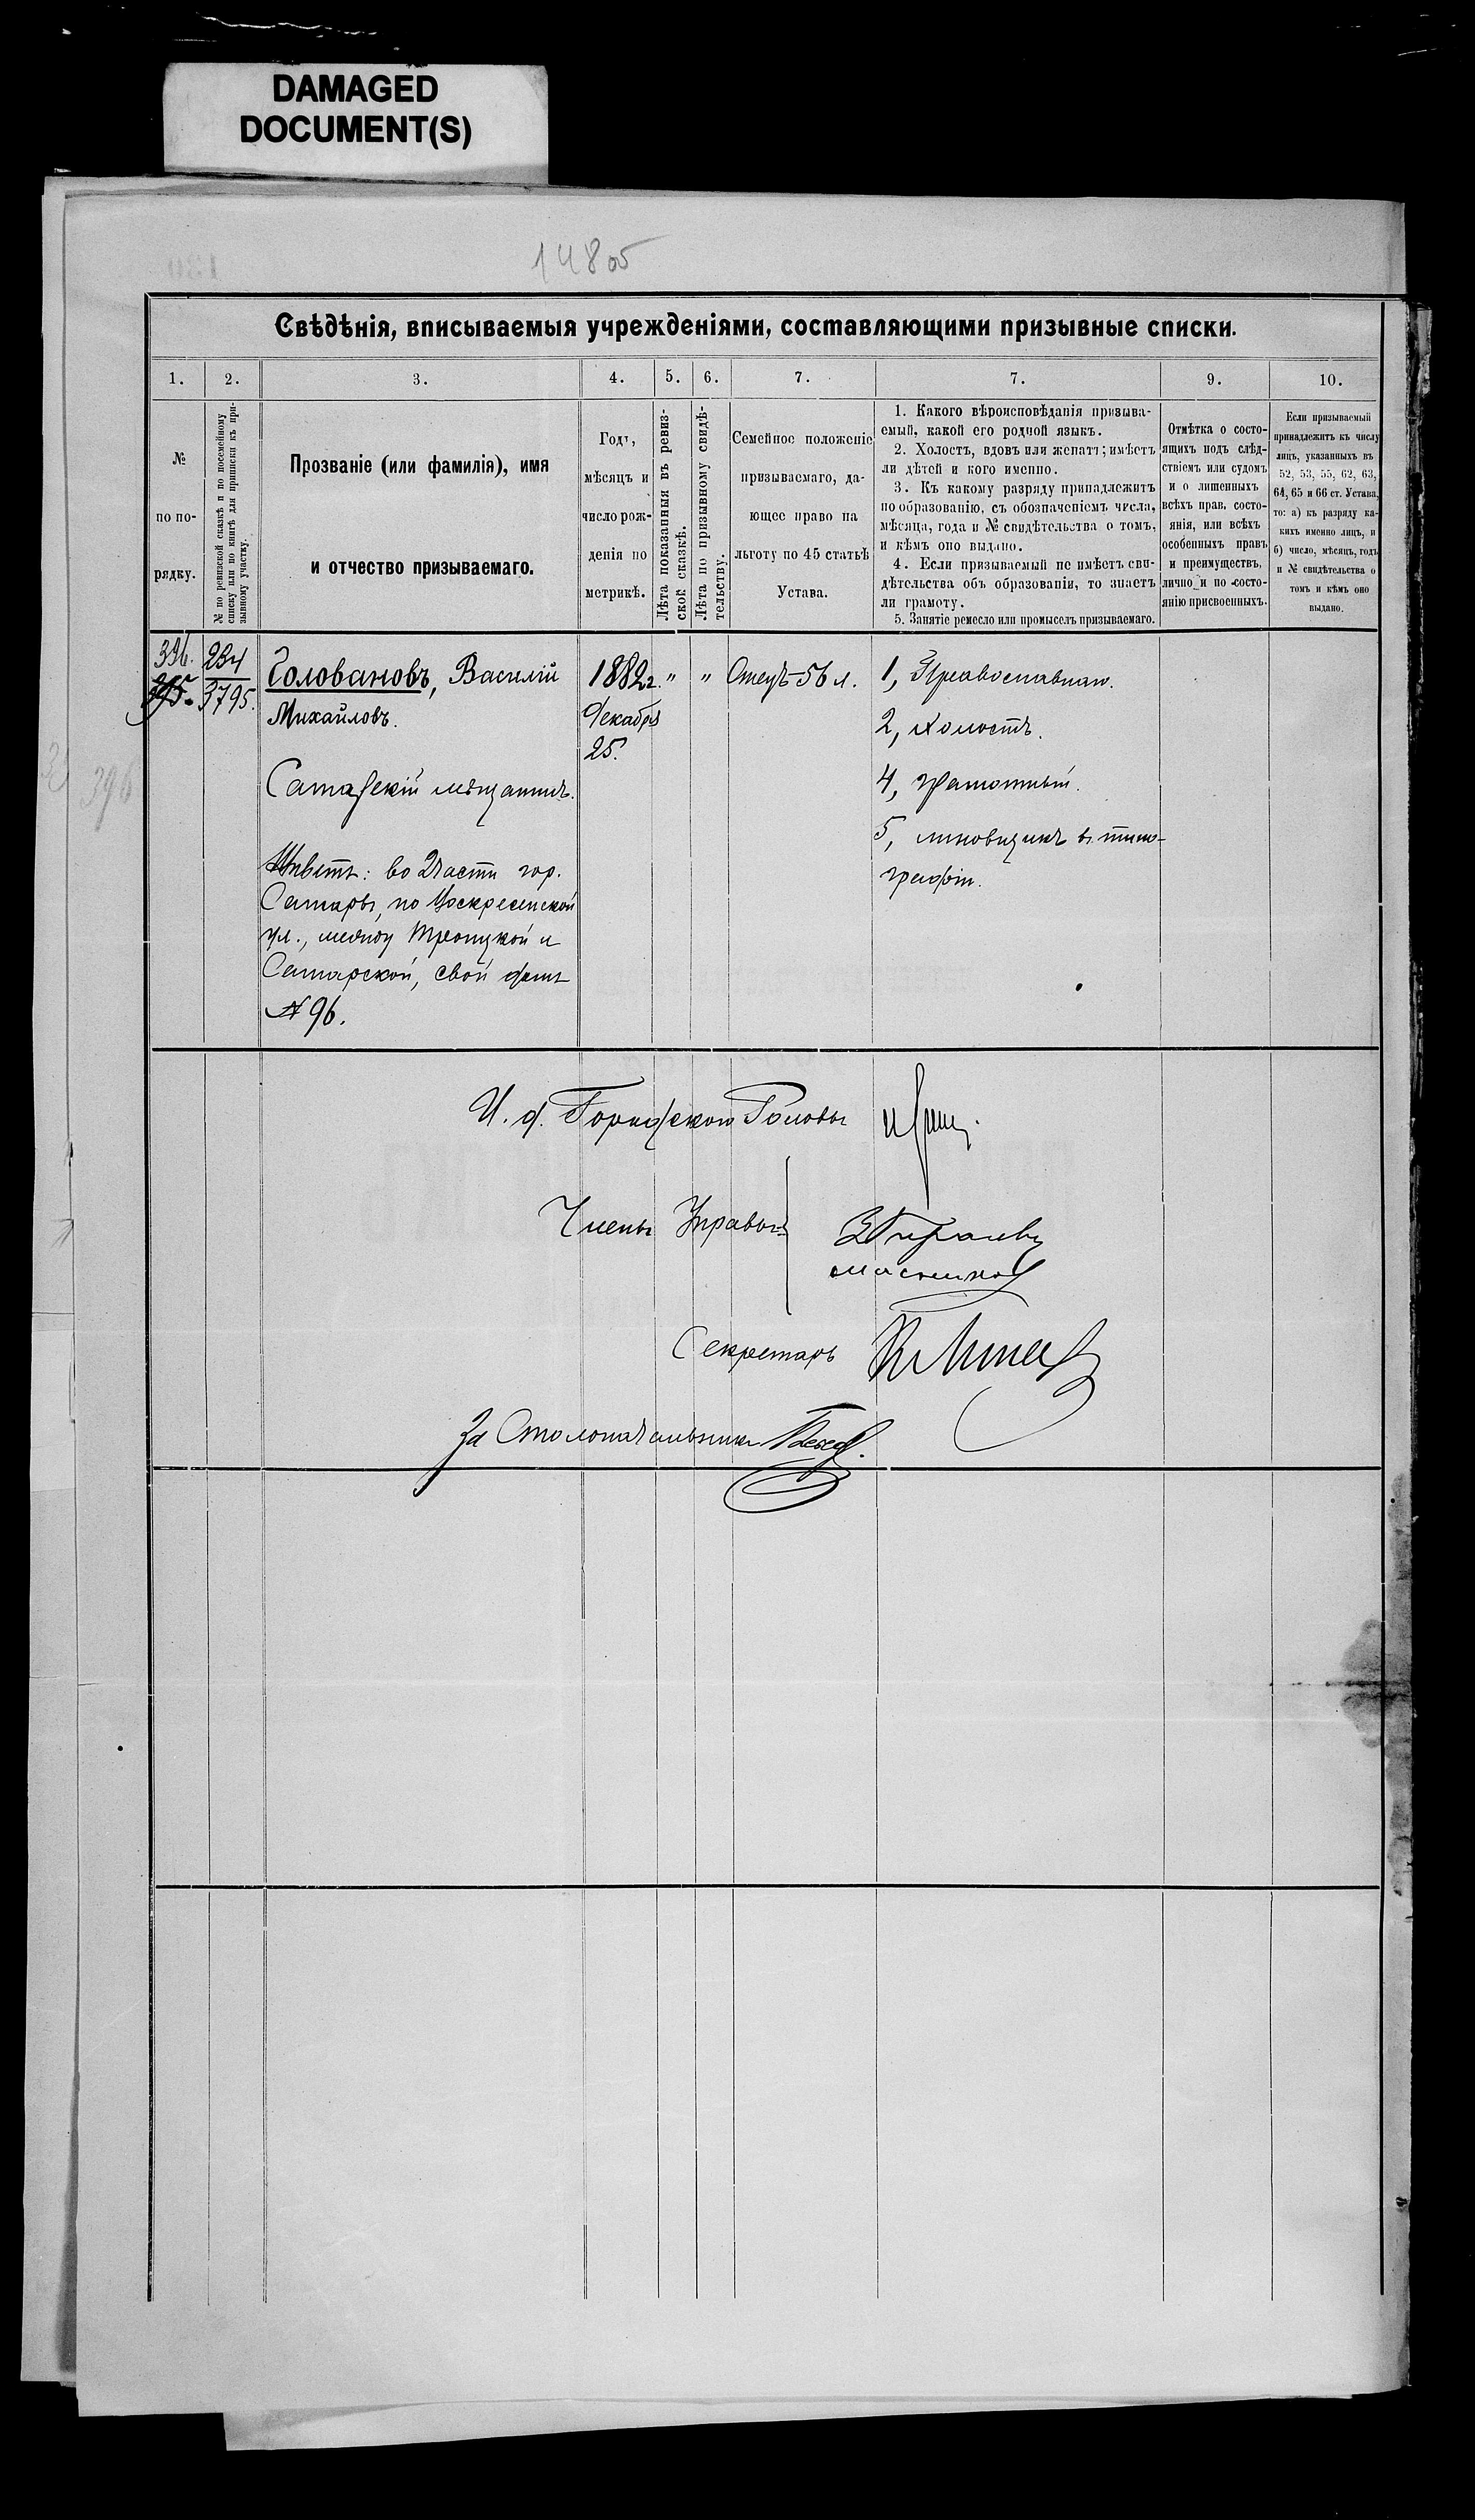 DAMAGED
DOCUMENT(S)
14805
Свѣдѣнія, вписываемыя учрежденіями, составляющими призывные списки.
1. 2. 3. 4. 5. 6. 7. 7. 9. 10.
№
по по-
рядку.
№ по ревизской сказкѣ и по посемейному
списку или по книгѣ для приписки къ при-
зывному участку.
Прозваніе (или фамилія), имя
и отчество призываемаго.
Годъ,
мѣсяцъ и
число рож-
денія по
метрикѣ.
Лѣта показанныя въ ревиз-
ской сказкѣ.
Лѣта по призывному свидѣ-
тельству.
Семейное положеніе
призываемаго, да-
ющее право на
льготу по 45 статьѣ
Устава.
1. Какого вѣроисповѣданія призыва-
емый, какой его родной языкъ.
2. Холостъ, вдовъ или женатъ; имѣетъ
ли дѣтей и кого именно.
3. Къ какому разряду принадлежитъ
по образованію, съ обозначеніемъ числа,
мѣсяца, года и № свидѣтельства о томъ,
и кѣмъ оно выдано.
4. Если призываемый не имѣетъ сви-
дѣтельства объ образованіи, то знаетъ
ли грамоту.
5. Занятіе ремесло или промыселъ призываемаго.
Отмѣтка о состо-
ящихъ подъ слѣд-
ствіемъ или судомъ
и о лишенныхъ
всѣхъ прав. состо-
янія, или всѣхъ
особенныхъ правъ
и преимуществъ,
лично и по состо-
янію присвоенныхъ.
Если призываемый
принадлежитъ къ числу
лицъ, указанныхъ въ
52, 53, 55, 62, 63,
64, 65 и 66 ст. Устава,
то: а) къ разряду ка-
кихъ именно лицъ, и
б) число, мѣсяцъ, годъ
и № свидѣтельства о
томъ и кѣмъ оно
выдано.
396.
395.
234
3795.
Головановъ, Василій
Михайловъ.
Самарскій мѣщанинъ.
Живетъ: во 2 части гор.
Самары, по Воскресенской
ул., между Троицкой и
Самарской, свой домъ
№ 96.
1882 г.
Декабря
25.
" "
Отецъ – 56 л.
1, Православнаго.
2, Холостъ.
4, грамотный.
5, линовщикъ въ типо-
графіи.
396
И. д. Городского Головы
Члены Управы
Секретарь
За Столоначальника